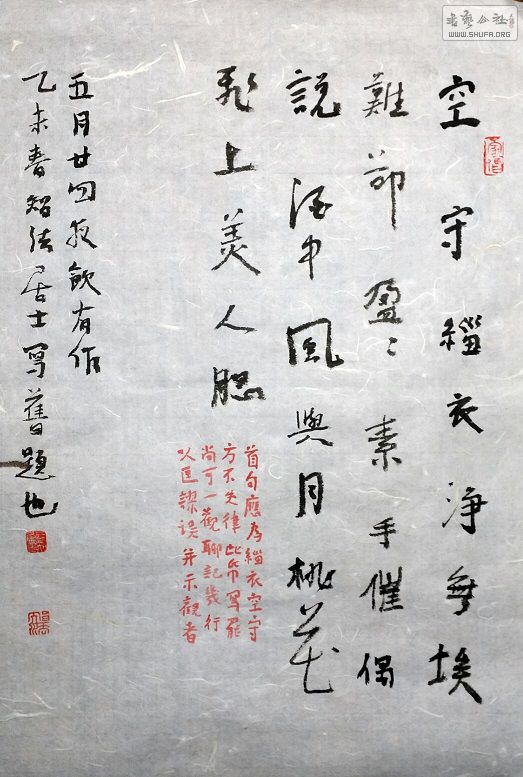 書藝公社
WWW.SHUFA.ORG
空守緇衣净無埃
難却盈〻素手催偶
說酒中風與月桃花
飛上美人腮
首句應為緇衣空守
方不失律此帋寫罷
尚可一觀聊記幾行
以匡謬误并示觀者
五月廿四夜飲有作
乙未春智法居士寫舊題也